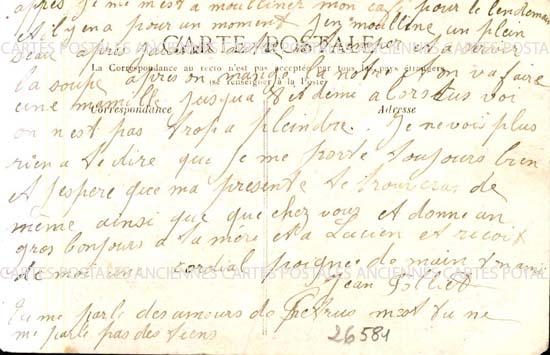 après je me mest a moulliner mon café pour le lendemain
et il y en a pour un moment j'en moulline un plein
seau après
CARTE POSTALE
La Correspondance au recto n'est pas acceptée par tous les pays étrangers
(se renseigner à la Poste)
la soupe après on mange la notre et on va faire
une manille jusqua 8 et demie alors tus voi
Correspondance Adresse
on n'est pas trop a pleindre. Je ne vois plus
rien a te dire que je me porte toujours bien
et j'espere que ma presente te trouveras de
même ainsi que que chez vous et donne un
gros bonjours a ta mère et a Lucien et recoit
de moi un cordial poignée de main t'ami
CARTES POSTALES ANCIENNES CARTES POSTALES ANCIENNES CARTES POSTALES
Jean
Tu me parle des amours de Petrus mest tu ne
me parle pas des tiens
26584